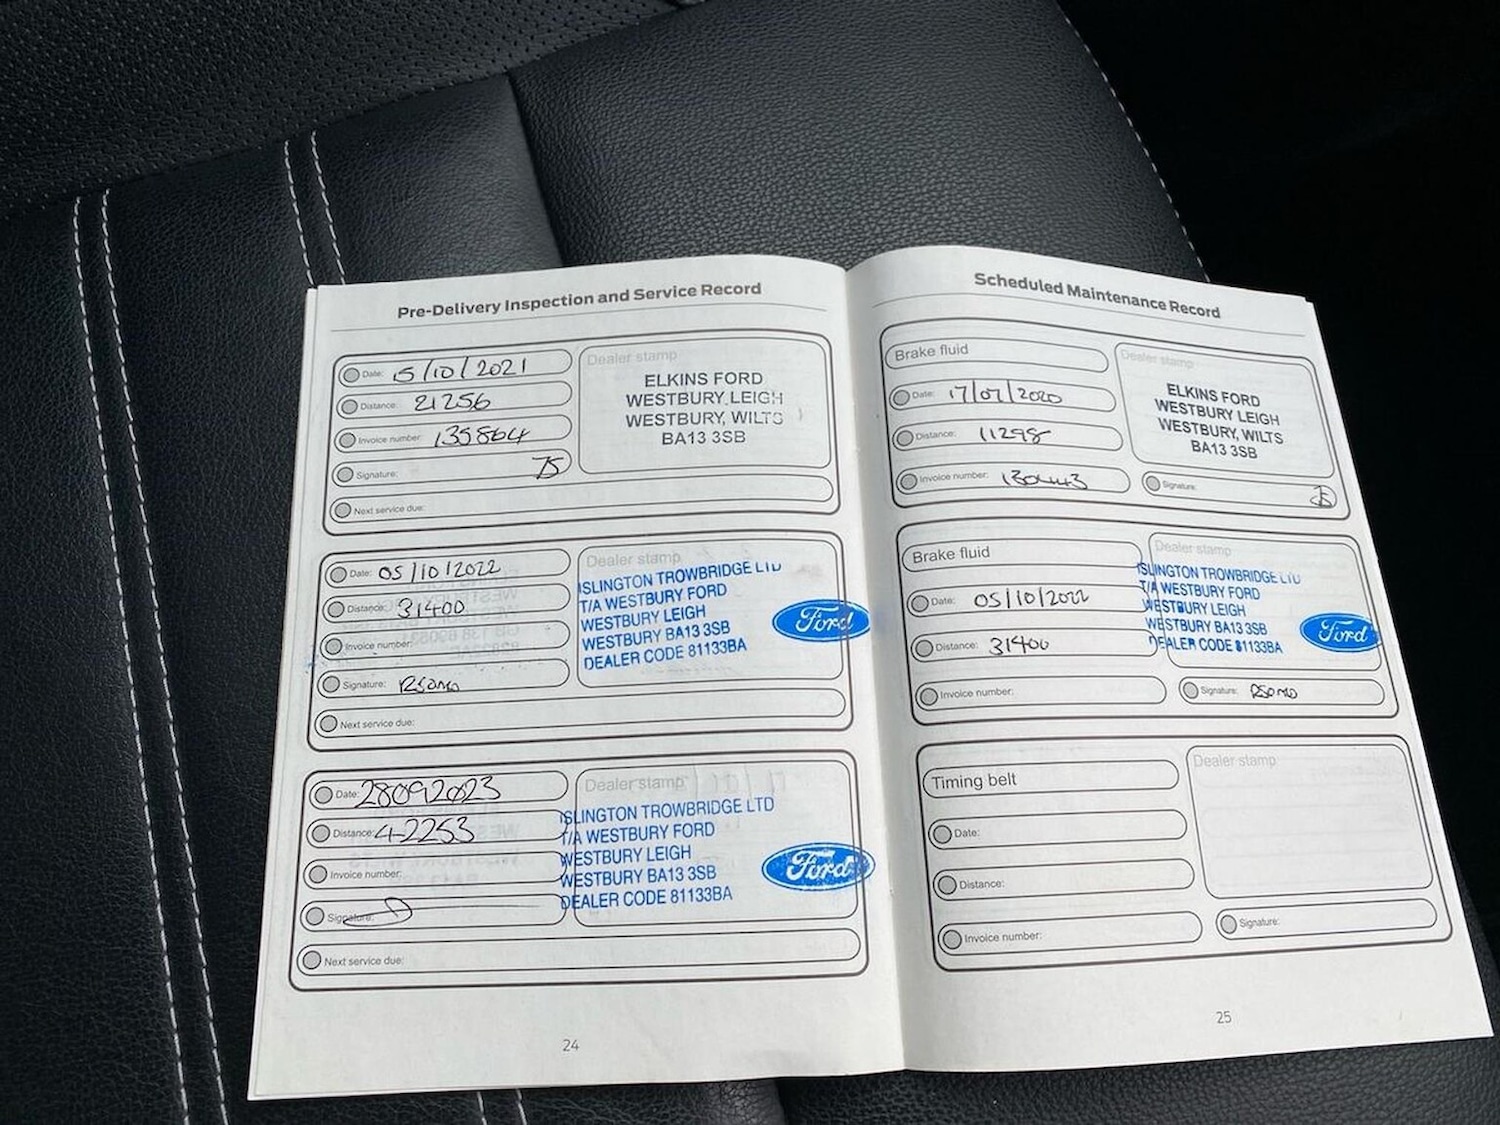 Pre-Delivery Inspection and Service Record
Date: 5/10/2021
Distance: 21256
Invoice number: 135864
Signature:
Next service due:
Dealer stamp
ELKINS FORD
WESTBURY LEIGH
WESTBURY, WILTS
BA13 3SB
Date: 05/10/2022
Distance: 31400
Invoice number:
Signature:
Next service due:
Dealer stamp
ISLINGTON TROWBRIDGE LTD
T/A WESTBURY FORD
WESTBURY LEIGH
WESTBURY BA13 3SB
DEALER CODE 81133BA
Ford
Date: 28092023
Distance: 42253
Invoice number:
Signature:
Next service due:
Dealer stamp
ISLINGTON TROWBRIDGE LTD
T/A WESTBURY FORD
WESTBURY LEIGH
WESTBURY BA13 3SB
DEALER CODE 81133BA
Ford
24
Scheduled Maintenance Record
Brake fluid
Date: 17/07/2020
Distance: 11298
Invoice number:
Dealer stamp
ELKINS FORD
WESTBURY LEIGH
WESTBURY, WILTS
BA13 3SB
Signature:
Brake fluid
Date: 05/10/2022
Distance: 31400
Invoice number:
Dealer stamp
ISLINGTON TROWBRIDGE LTD
T/A WESTBURY FORD
WESTBURY LEIGH
WESTBURY BA13 3SB
DEALER CODE 81133BA
Ford
Signature:
Timing belt
Date:
Distance:
Invoice number:
Dealer stamp
Signature:
25